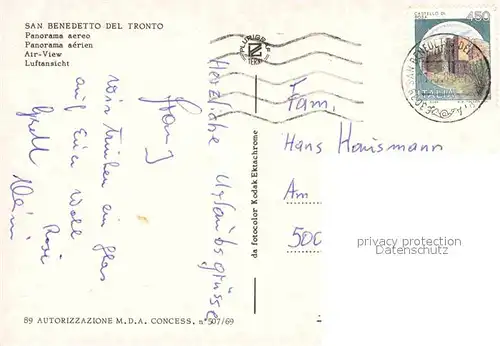 SAN BENEDETTO DEL TRONTO
Panorama aereo
Panorama aérien
Air-View
Luftansicht
PLURIGRAF
TERNI
CASTELLO DI
ROSA
450
ITALIA
SAN BENEDETTO DEL
Herzliche Urlaubsgrüsse
Wir trinken ein Glas
auf Euer Wohl
Rosi
Fam.
Hans Hausmann
Am
500
privacy protection
Datenschutz
da fotocolor Kodak Ektachrome
89 AUTORIZZAZIONE M.D.A. CONCESS. n° 507/69